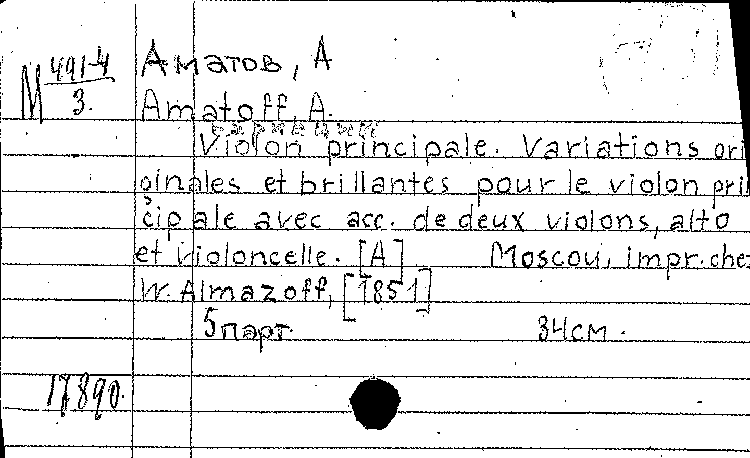 М 491-4
3.
Аматов, А
Amatoff, A.
Violon principale. Variations ori
ginales et brillantes pour le violon prin
cipale avec acc. de deux violons, alto
et violoncelle. [A] Moscou, impr. chez
W. Almazoff, [1851]
5 парт. 34см.
17890.